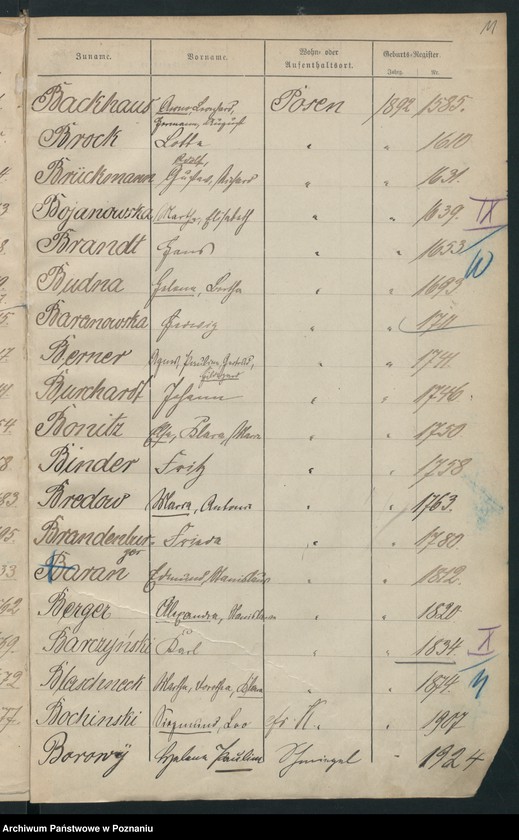 11
Zuname. Vorname. Wohn- oder Aufenthaltsort. Geburts-Register.
Jahrg. Nr.
Backhaus Arno, Leonhard, Hermann, August Posen 1892 1585.
Brock Lotte " " 1610
Brückmann Adolf, Gustav, Richard " " 1631.
Bojanowska Martha, Elisabeth " " 1639. IX
Brandt Hans " " 1653
Budna Helena, Bertha " " 1693
Baranowska " " 1711
Berner Agnes, Pauline, " " 1741.
Burchardt Johann " " 1746.
Bonitz Else, Klara, Maria " " 1750
Binder Fritz " " 1758
Bredow Maria, Antonie " " 1763.
Brandenburger Frieda " " 1780.
Baran Edmund, Stanislaus " " 1812.
Berger Alexandra, Stanislawa " " 1820
Barczyński Karl " " 1834 X
Blaschneck Martha, Dorothea, Klara " " 1874.
Bochinski Siegmund, Leo " 1907
Borowy Helena Pauline Schmiegel " 1924
Archiwum Państwowe w Poznaniu